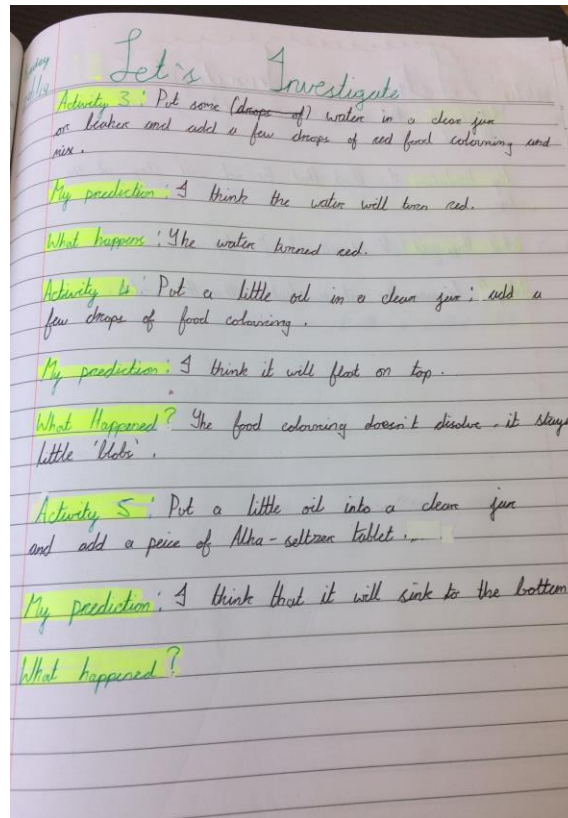 Let's Investigate
Activity 3: Put some (drops of) water in a clear jar
or beaker and add a few drops of red food colouring and
mix.
My prediction: I think the water will turn red.
What happens: The water turned red.
Activity 4: Put a little oil in a clear jar; add a
few drops of food colouring.
My prediction: I think it will float on top.
What Happened? The food colouring doesn't disolve - it stays
little 'blobs'.
Activity 5: Put a little oil into a clear jar
and add a peice of Alka-seltzer tablet...
My prediction: I think that it will sink to the bottom
What happened?